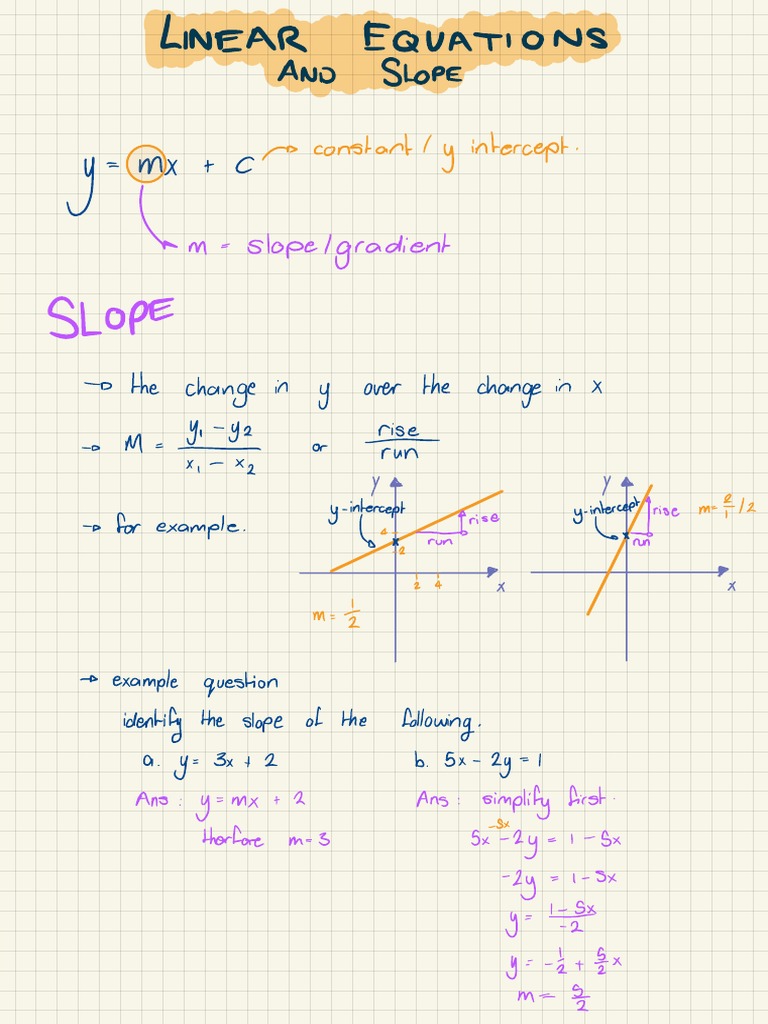 LINEAR EQUATIONS
AND SLOPE
y = mx + c → constant / y intercept.
m = slope/gradient
SLOPE
→ the change in y over the change in x
→ M = (y₁ - y₂)/(x₁ - x₂) or rise/run
→ for example.
y
y-intercept
rise
run
4
2
2 4
x
m = 1/2
y
y-intercept
rise
run
m = 2/1 / 2
x
→ example question
identify the slope of the following.
a. y = 3x + 2
Ans: y = mx + 2
therfore m = 3
b. 5x - 2y = 1
Ans: simplify first.
-5x
5x - 2y = 1 - 5x
-2y = 1 - 5x
y = (1 - 5x)/-2
y = -1/2 + 5/2 x
m = 5/2